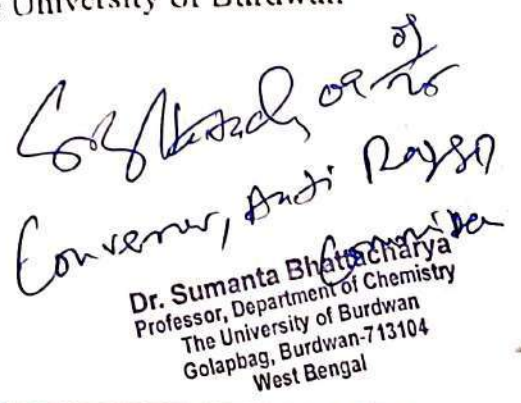 University of Burdwan
Convenor, Anti Ragging
Committee
Dr. Sumanta Bhattacharya
Professor, Department of Chemistry
The University of Burdwan
Golapbag, Burdwan-713104
West Bengal